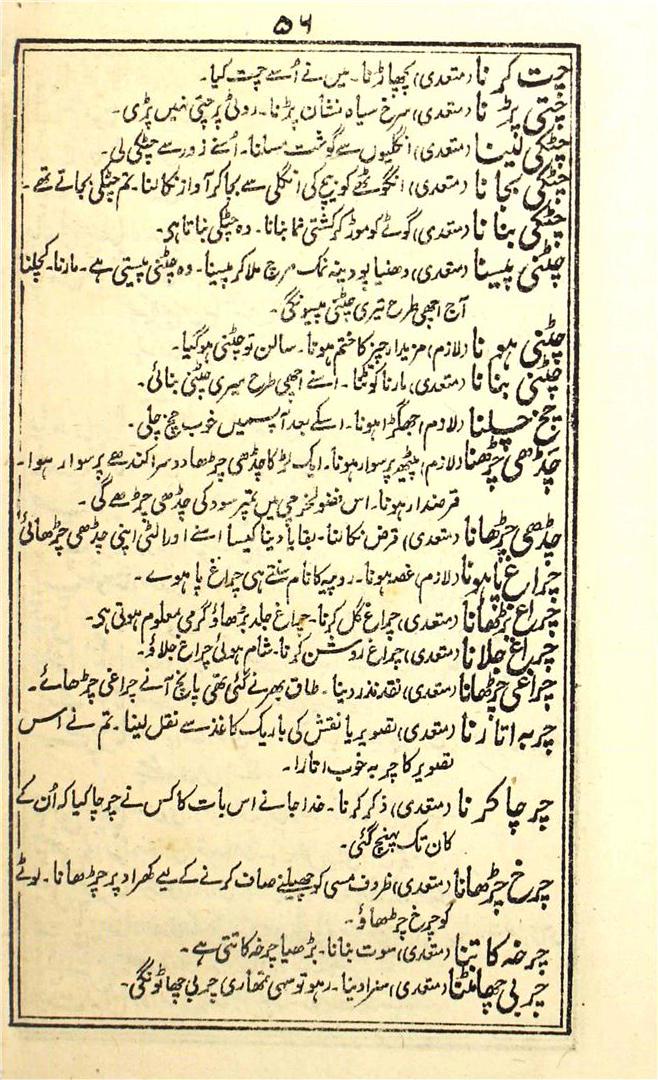 ۵۶
چت کرنا (متعدی) پچھاڑنا۔ میں نے اُسے چت کیا۔
چتی پڑنا (متعدی) سرخ سیاہ نشان پڑنا۔ روٹی پر چتی نہیں پڑی۔
چٹکی لینا (متعدی) انگلیوں سے گوشت مسلنا۔ اُسنے زور سے چٹکی لی۔
چٹکی بجانا (متعدی) انگوٹھے کو بیچ کی انگلی سے بجا کر آواز نکالنا۔ تم چٹکی بجاتے تھے۔
چٹکی بنانا (متعدی) گوٹے کو موڑ کر کشتی نما بنانا۔ وہ چٹکی بناتا ہی۔
چٹنی پیسنا (متعدی) دھنیا پودینہ نمک مرچ ملا کر پیسنا۔ وہ چٹنی پیستی ہے۔ مارنا۔ کچلنا
آج اچھی طرح تیری چٹنی پیسونگی۔
چٹنی ہونا (لازم) مزیدار چیز کا ختم ہونا۔ سالن تو چٹنی ہو گیا۔
چٹنی بنانا (متعدی) مارنا کوٹنا۔ اسنے اچھی طرح میری چٹنی بنائی۔
چخ چلنا (لازم) جھگڑا ہونا۔ اسکے بعد آپسمیں خوب چخ چلی۔
چڈھی چڑھنا (لازم) پیٹھ پر سوار ہونا۔ ایک لڑکا چڈھی چڑھا دوسرا کندھے پر سوار ہوا۔
قرضدار ہونا۔ اس فضولخرچی میں تمپر سود کی چڈھی چڑھے گی۔
چڈھی چڑھانا (متعدی) قرض نکالنا۔ بقایا دینا کیسا اسنے اور الٹی اپنی چڈھی چڑھائی
چراغ پا ہونا (لازم) غصہ ہونا۔ روپیہ کا نام سنتے ہی چراغ پا ہوے۔
چراغ بڑھانا (متعدی) چراغ گل کرنا۔ چراغ جلد بڑھاؤ گرمی معلوم ہوتی ہی۔
چراغ جلانا (متعدی) چراغ روشن کرنا۔ شام ہوئی چراغ جلاؤ۔
چراغی چڑھانا (متعدی) نقد نذر دینا۔ طاق بھرنے گئی تھی پانچ آنے چراغی چڑھائے۔
چربہ اتارنا (متعدی) تصویر یا نقش کی باریک کاغذ سے نقل لینا۔ تم نے اس
تصویر کا چربہ خوب اتارا۔
چرچا کرنا (متعدی) ذکر کرنا۔ خدا جانے اس بات کا کس نے چرچا کیا کہ اُن کے
کان تک پہنچ گئی۔
چرخ چڑھانا (متعدی) ظروف مسی کو چھیلنے صاف کرنے کے لیے کھراد پر چڑھانا۔ لوٹے
کو چرخ چڑھاؤ۔
چرخہ کاتنا (متعدی) سوت بنانا۔ بڑھیا چرخہ کاتتی ہے۔
چربی چھانٹنا (متعدی) سزا دینا۔ رہو تو سہی تمھاری چربی چھانٹونگی۔